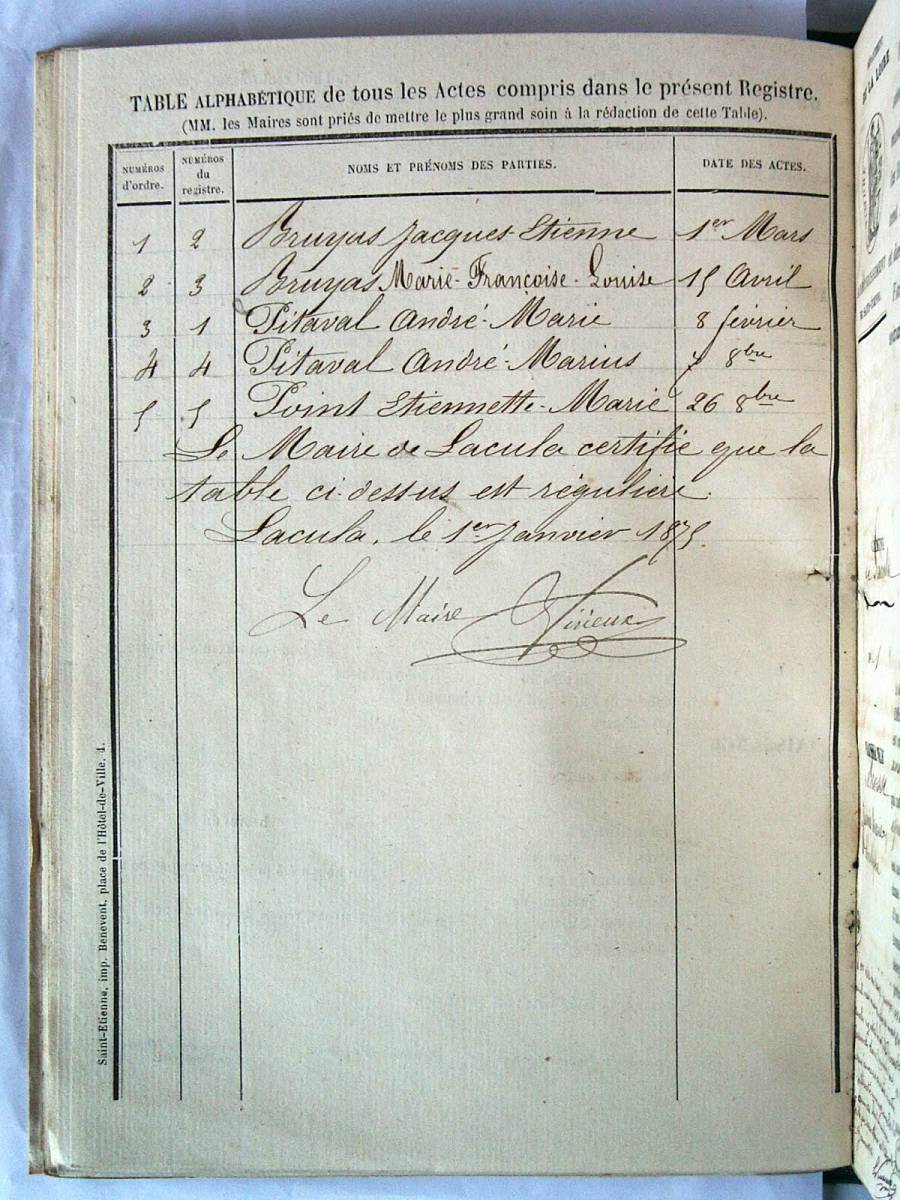 TABLE ALPHABÉTIQUE de tous les Actes compris dans le présent Registre.
(MM. les Maires sont priés de mettre le plus grand soin à la rédaction de cette Table).
NUMÉROS d'ordre. NUMÉROS du registre. NOMS ET PRÉNOMS DES PARTIES. DATE DES ACTES.
1 2 Bruyas Jacques-Etienne 1er Mars
2 3 Bruyas Marie-Françoise-Louise 15 Avril
3 1 Pitaval André-Marie 8 février
4 4 Pitaval André-Marius 7 8bre
5 5 Point Etiennette-Marie 26 8bre
Le Maire de Lacula certifie que la
table ci-dessus est régulière.
Lacula, le 1er Janvier 1875.
Le Maire
Saint-Etienne, imp. Benevent, place de l'Hôtel-de-Ville, 4.
DE LA LOIRE